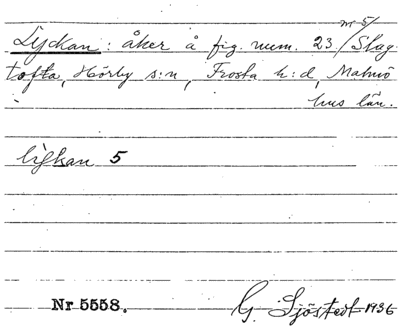 nr 5/
Lyckan: åker å fig. num. 23/Slag-
tofta, Hörby s:n, Frosta h:d, Malmö
hus län.
5
Nr 5558.
G. Sjöstedt 1936